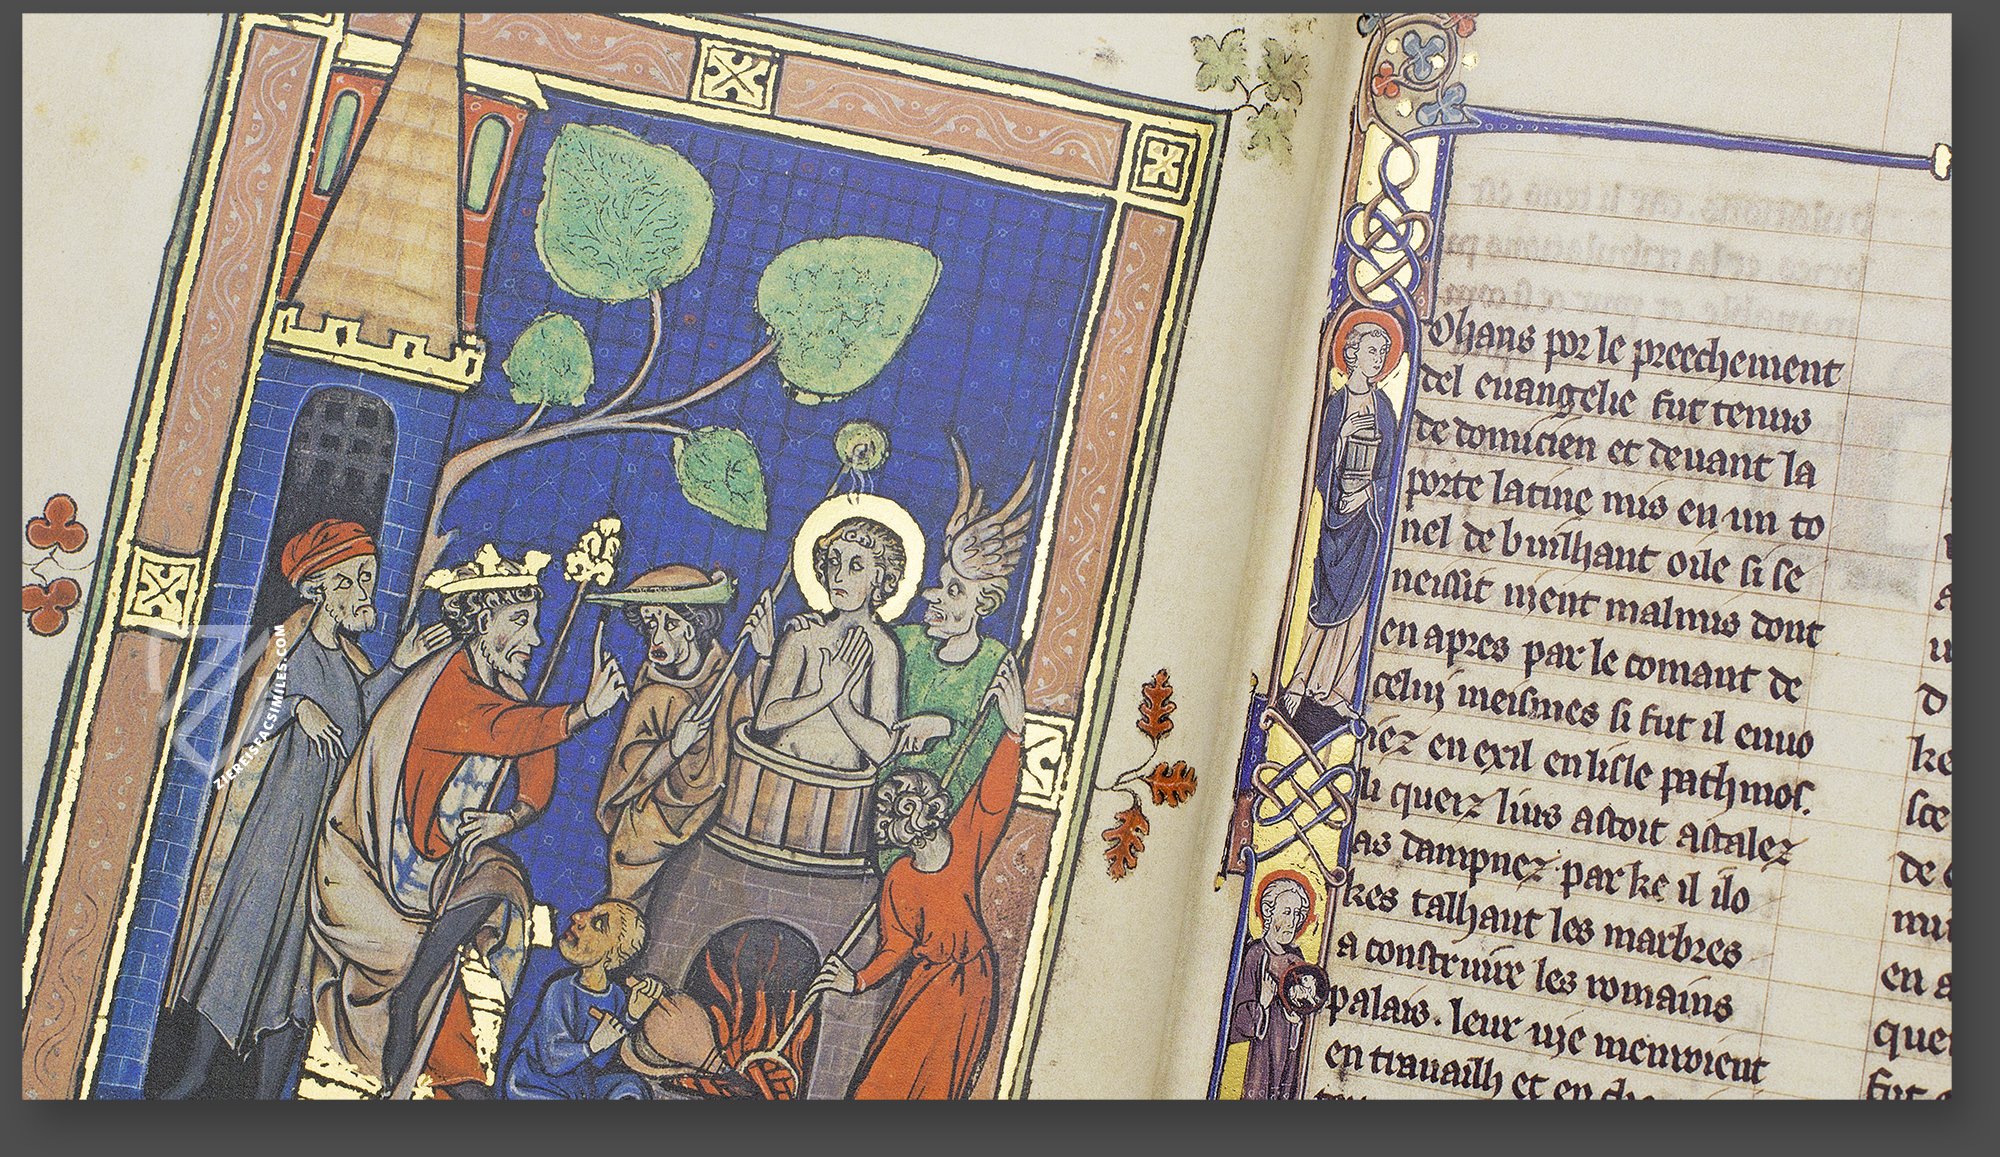 Ohans por le preechement
del euangelie fut tenus
de domicien et deuant la
porte latine mis en un to
nel de builhant oile si se
nensut nient malmis dont
en apres par le comant de
celuj meismes si fut il enuo
iez en exil en lisle pathmos.
li queiz lius astoit astalez
as dampnez par ke il ilo
kes talhant les marbres
a construire les romains
palais. leur uie menroient
en trauailh et en
ke
sce
de
en a
que
fut
ZIEREISFACSIMILES.COM